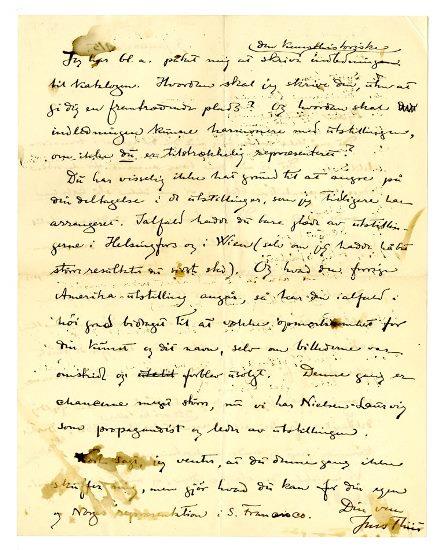 den kunsthistoriske
Jeg har bl. a. påtat mig at skrive indledningen
til Katalogen. Hvordan skal jeg skrive den, uten at
gi dig en fremtrædende plads? Og hvordan skal
indledningen kunne harmonere med utstillingen,
om ikke du er tilstrækkelig repræsenteret?
Du har visselig ikke hat grund til at angre på
din deltagelse i de utstillinger, som jeg tidligere har
arrangeret. Ialfald hadde du bare glæde av utstillin-
gerne i Helsingfors og i Wien (selv om jeg hadde håbet
større resultater du vort sted). Og hvad den forrige
Amerika-utstilling angår, så har den ialfald i
høi grad bidraget til at vække opmerksomhet for
din kunst og dit navn, selv om billederne var
og forblev usolgt. Denne gang er
chancerne meget større, nu vi har Nielsen-Lauvvig
som propagandist og leder av utstillingen.
jeg venter, at du denne gang ikke
skuffer mig, men gjør hvad du kan for din egen
og Norges repræsentation i S. Francisco.
Din ven
Jens Thiis